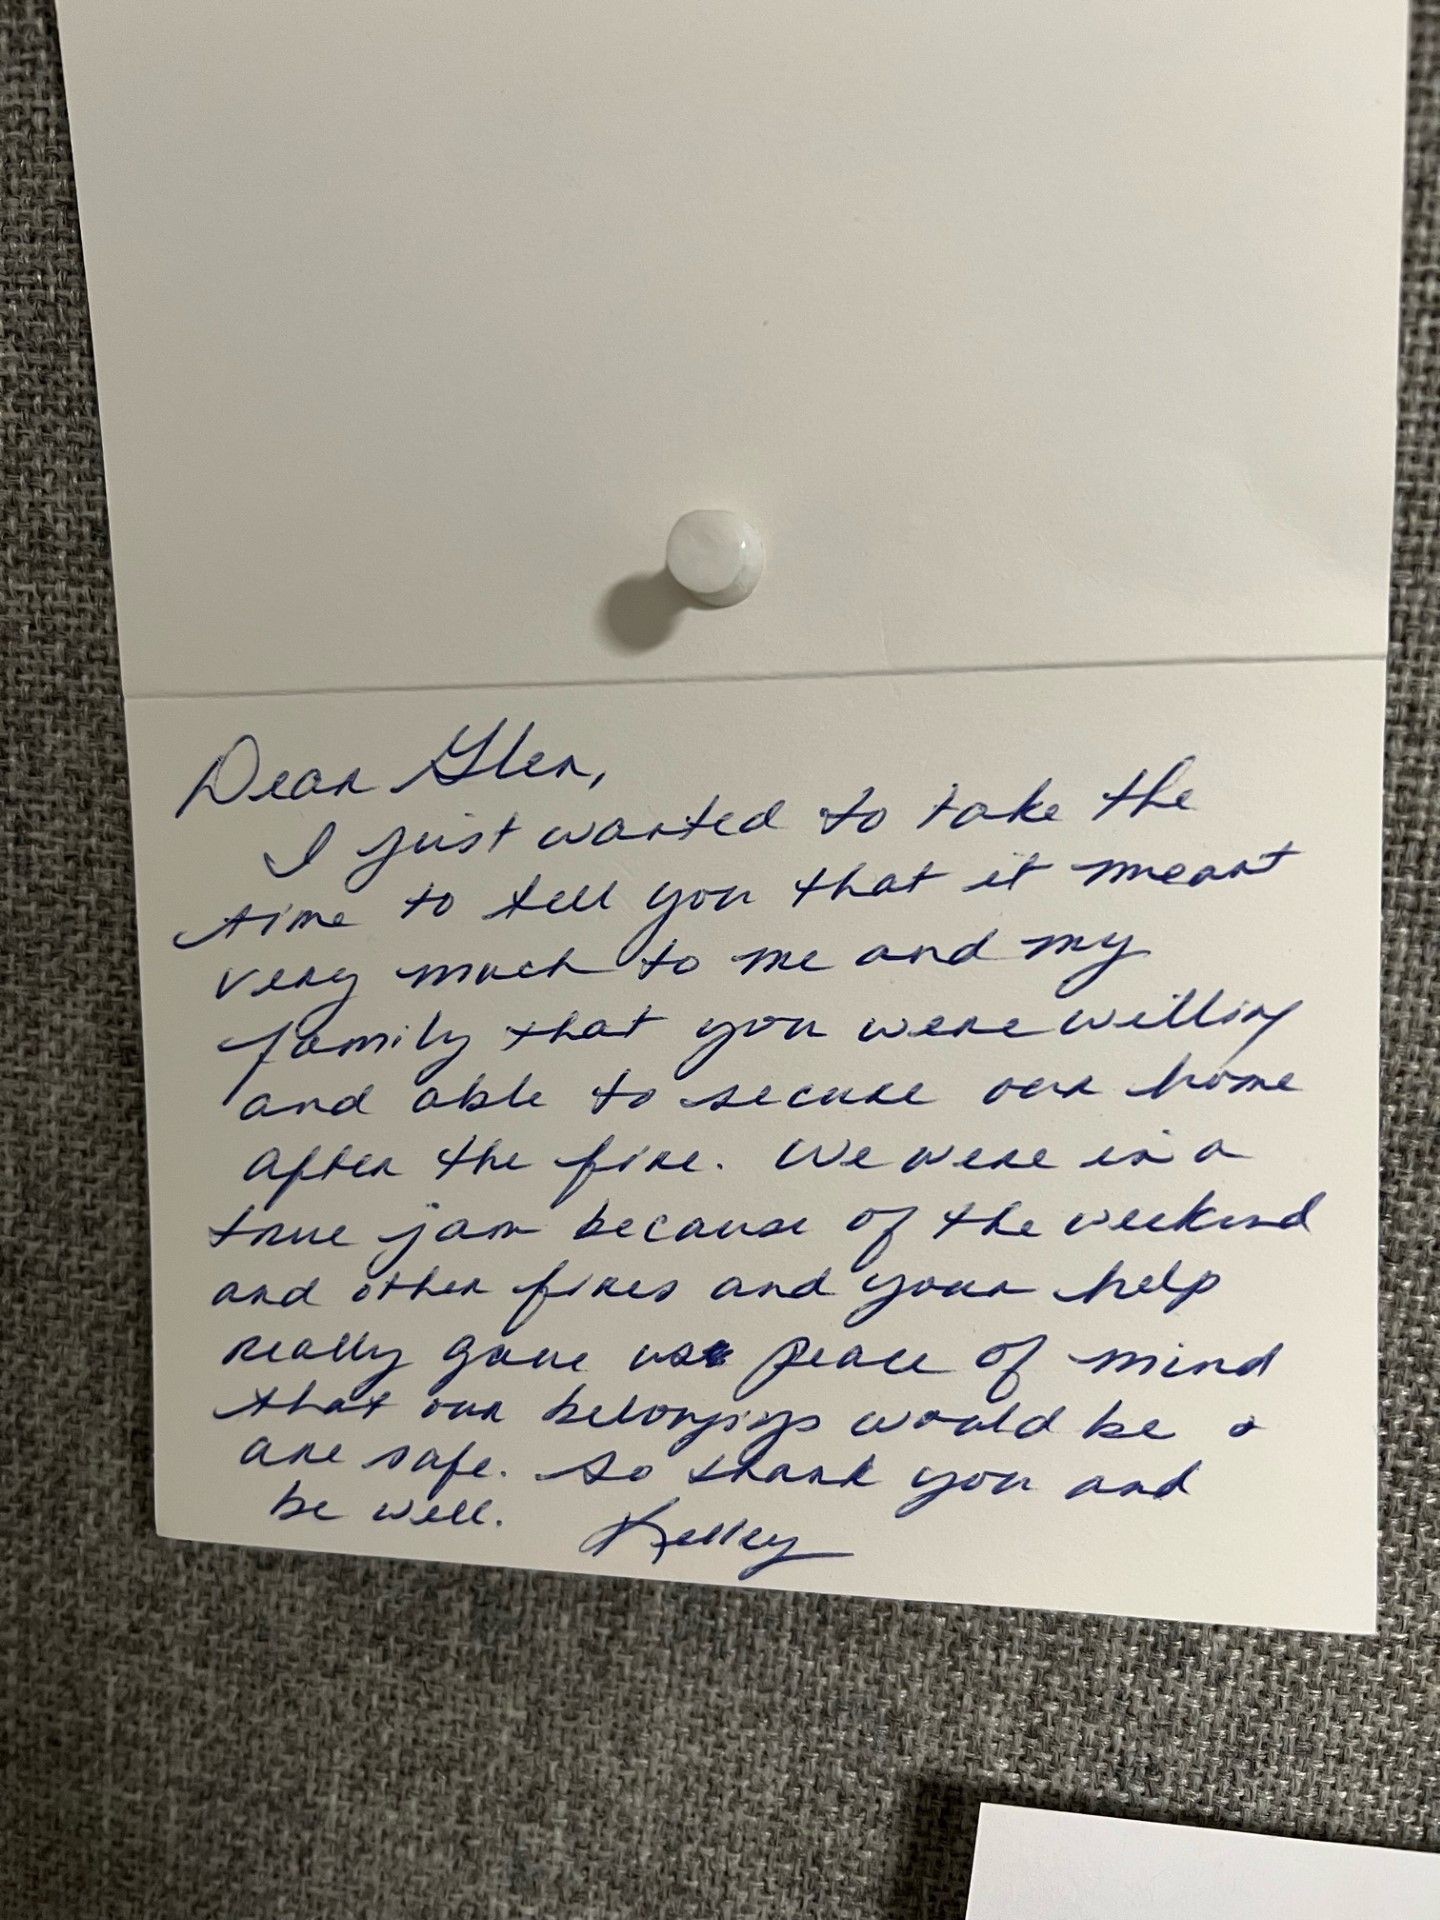 Dear Glen,
I just wanted to take the
time to tell you that it meant
very much to me and my
family that you were willing
and able to secure our home
after the fire. We were in a
true jam because of the weekend
and other fires and your help
really gave us peace of mind
that our belongings would be &
are safe. So thank you and
be well. Kelley